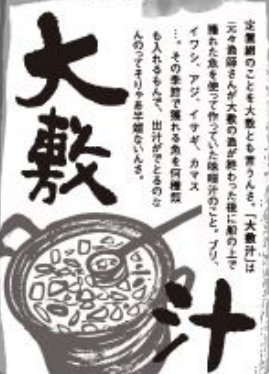 大敷汁
定置網のことを大敷とも言うんさ。「大敷汁」は
元々漁師さんが大敷の漁が終わった後に船の上で
獲れた魚を使って作っていた味噌汁のこと。ブリ、
イワシ、アジ、イサギ、カマス
…。その季節で獲れる魚を何種類
も入れるもんで、出汁がでとるのな
んのってそりゃあ半端ないんさ。